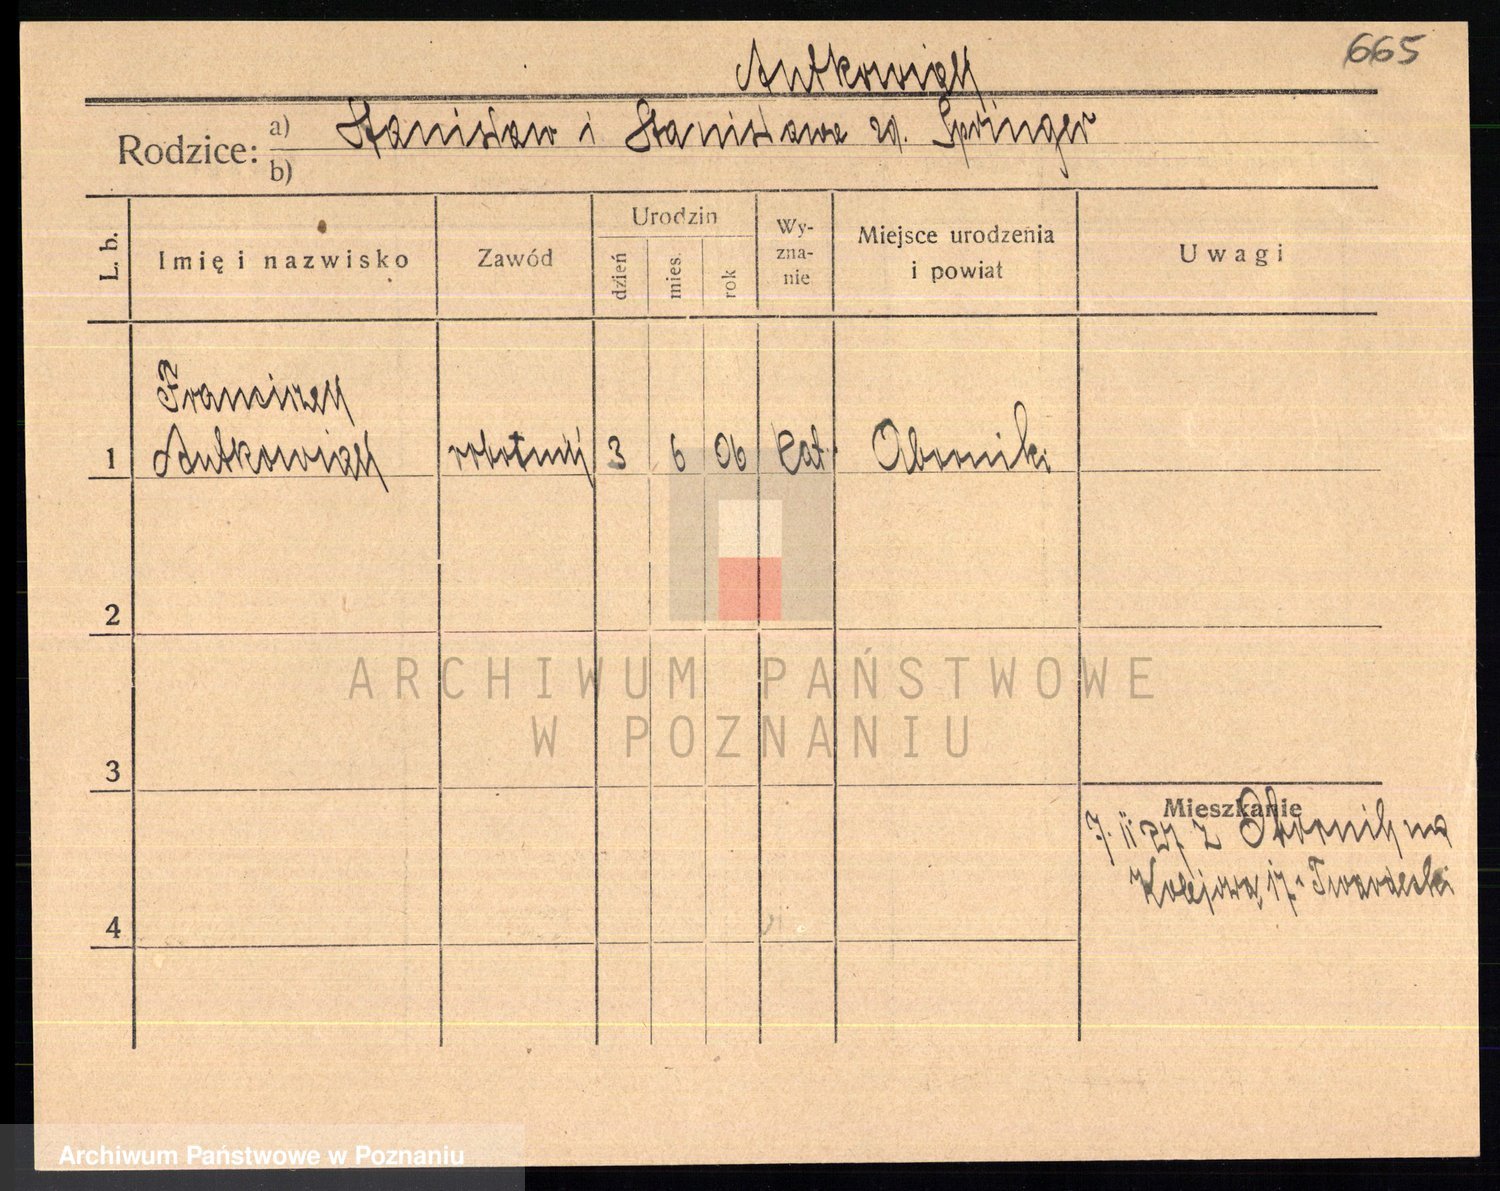 665
Antkowiak
Rodzice: a) Stanisław i Stanisława zd. Springer
b)
L. b. Imię i nazwisko Zawód Urodzin dzień mies. rok Wy-zna-nie Miejsce urodzenia i powiat Uwagi
Franciszek
1 Antkowiak robotnik 3 6 06 kat. Oborniki
2
ARCHIWUM PAŃSTWOWE
W POZNANIU
3
Mieszkanie
7. 11 27 z Obornik na
Kolejową 17. Twardecki
4
Archiwum Państwowe w Poznaniu